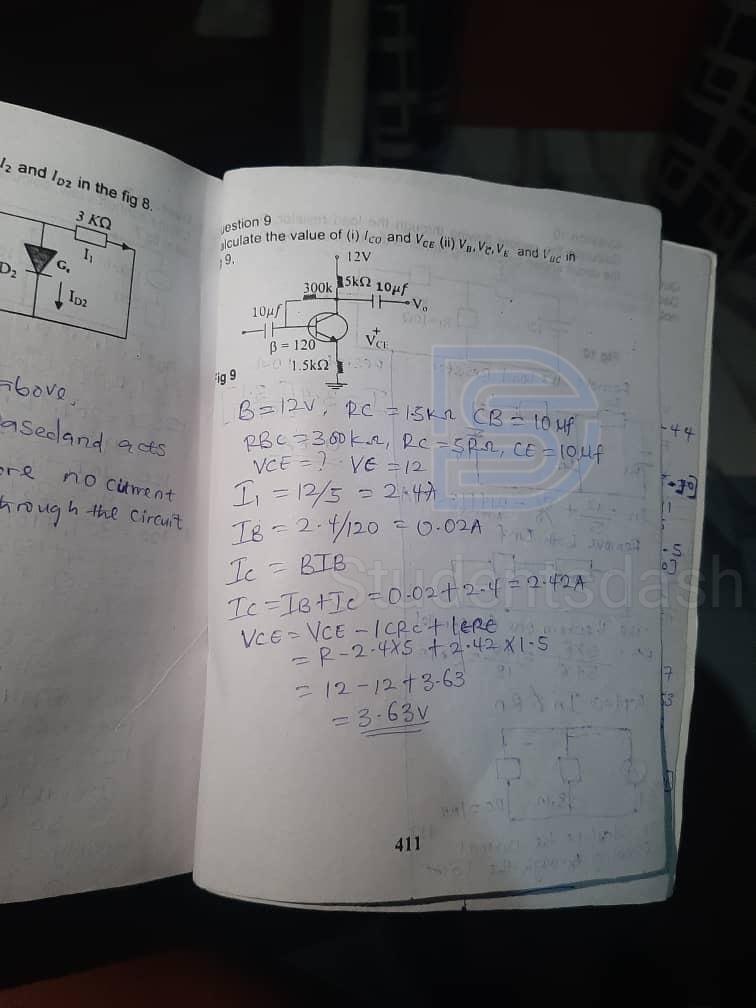 I2 and ID2 in the fig 8.
3 KΩ
I1
D2
G.
ID2
above.
ased and acts
no current
hrough the circuit
uestion 9
alculate the value of (i) ICO and VCE (ii) VB, VC, VE and VBC in
9.
12V
300k 5kΩ 10μf
Vo
10μf
+
VCE
β = 120
1.5kΩ
Fig 9
B = 12V, RC = 1.5kΩ CB = 10μf
RBC = 300kΩ, RC = 5RΩ, CE = 10μf
VCE = ? VE = 12
I1 = 12/5 = 2.4A
IB = 2.4/120 = 0.02A
IC = BIB
IC = IB + IC = 0.02 + 2.4 = 2.42A
VCE = VCE - ICRC + IERE
= R - 2.4 x 5 + 2.42 x 1.5
= 12 - 12 + 3.63
= 3.63V
Studentsdash
411